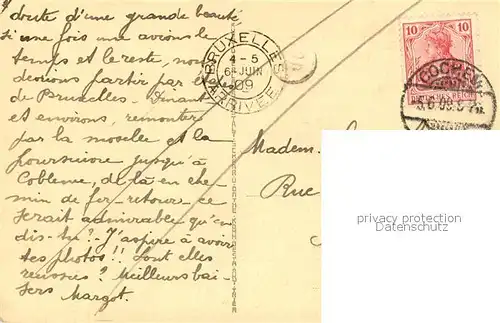 doute d'une grande beauté
Si une fois nous avions le
temps et le reste, nous
devrions partir par ex
de Bruxelles - Dinant
et environs, remonter
par la moselle et la
poursuivre jusqu'à
Coblence, de là en che-
min de fer - retour - ce
serait admirable qu'en
dis-tu? - J'aspire à avoir
tes photos!! Sont elles
reussies? Meilleurs bai-
sers Margot.
BRUXELLES
4-5
6 JUIN
09
ARRIVEE
10 10
DEUTSCHES REICH
COCHEM
Madem.
Rue
privacy protection
Datenschutz